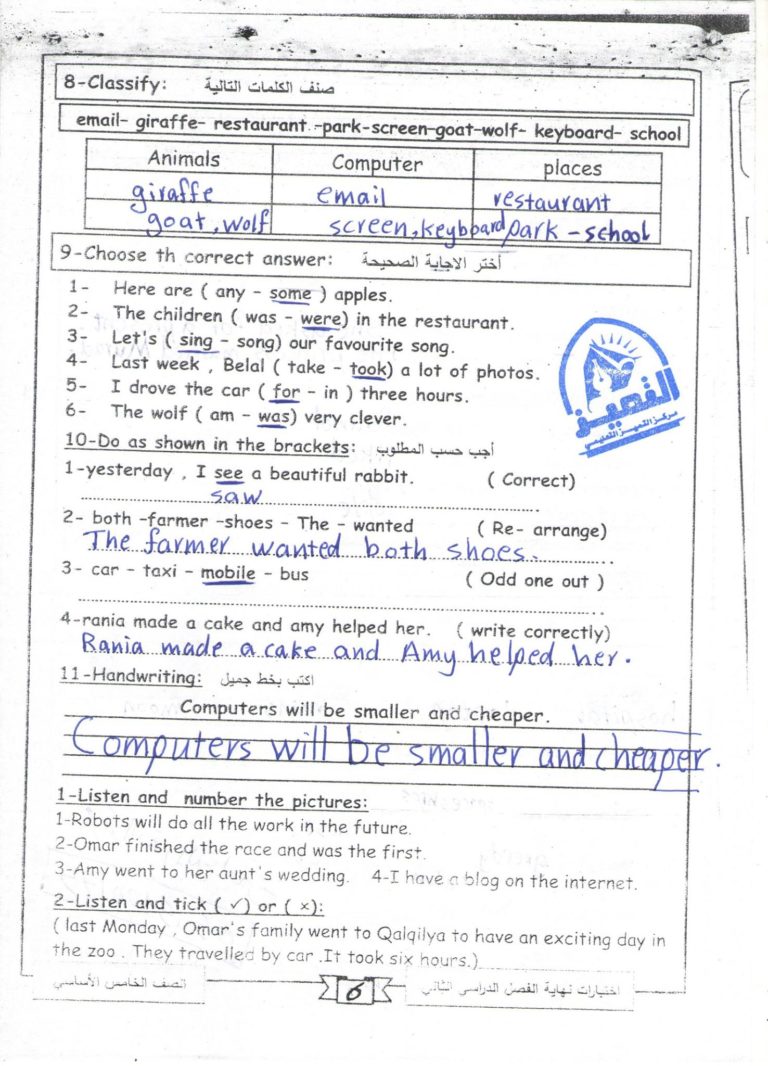 8-Classify: صنف الكلمات التالية
email- giraffe- restaurant -park-screen-goat-wolf- keyboard- school
Animals Computer places
giraffe email restaurant
goat, wolf screen, keyboard park - school
9-Choose th correct answer: أختر الاجابة الصحيحة
1- Here are ( any - some ) apples.
2- The children ( was - were) in the restaurant.
3- Let's ( sing - song) our favourite song.
4- Last week , Belal ( take - took) a lot of photos.
5- I drove the car ( for - in ) three hours.
6- The wolf ( am - was) very clever.
التميز
مركز التميز التعليمي
10-Do as shown in the brackets: أجب حسب المطلوب
1-yesterday , I see a beautiful rabbit. ( Correct)
saw
2- both -farmer -shoes - The - wanted ( Re- arrange)
The farmer wanted both shoes.
3- car - taxi - mobile - bus ( Odd one out )
4-rania made a cake and amy helped her. ( write correctly)
Rania made a cake and Amy helped her.
11-Handwriting: اكتب بخط جميل
Computers will be smaller and cheaper.
Computers will be smaller and cheaper.
1-Listen and number the pictures:
1-Robots will do all the work in the future.
2-Omar finished the race and was the first.
3-Amy went to her aunt's wedding. 4-I have a blog on the internet.
2-Listen and tick ( ✓) or ( ×):
( last Monday , Omar's family went to Qalqilya to have an exciting day in
the zoo . They travelled by car .It took six hours.)
الصف الخامس الأساسي 6 اختبارات نهاية الفصل الدراسي الثاني